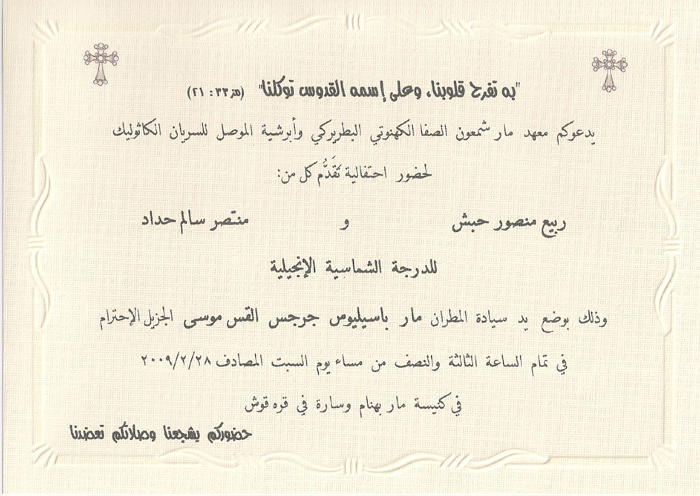 "به تفرح قلوبنا، وعلى إسمه القدوس توكلنا" (مز ٣٣ : ٢١)
يدعوكم معهد مار شمعون الصفا الكهنوتي البطريركي وأبرشية الموصل للسريان الكاثوليك
لحضور احتفالية تَقَدُّم كل من:
ربيع منصور حبش و منتصر سالم حداد
للدرجة الشماسية الإنجيلية
وذلك بوضع يد سيادة المطران مار باسيليوس جرجس القس موسى الجزيل الإحترام
في تمام الساعة الثالثة والنصف من مساء يوم السبت المصادف ٢٠٠٩/٢/٢٨
في كنيسة مار بهنام وسارة في قره قوش
حضوركم يشجعنا وصلاتكم تعضدنا